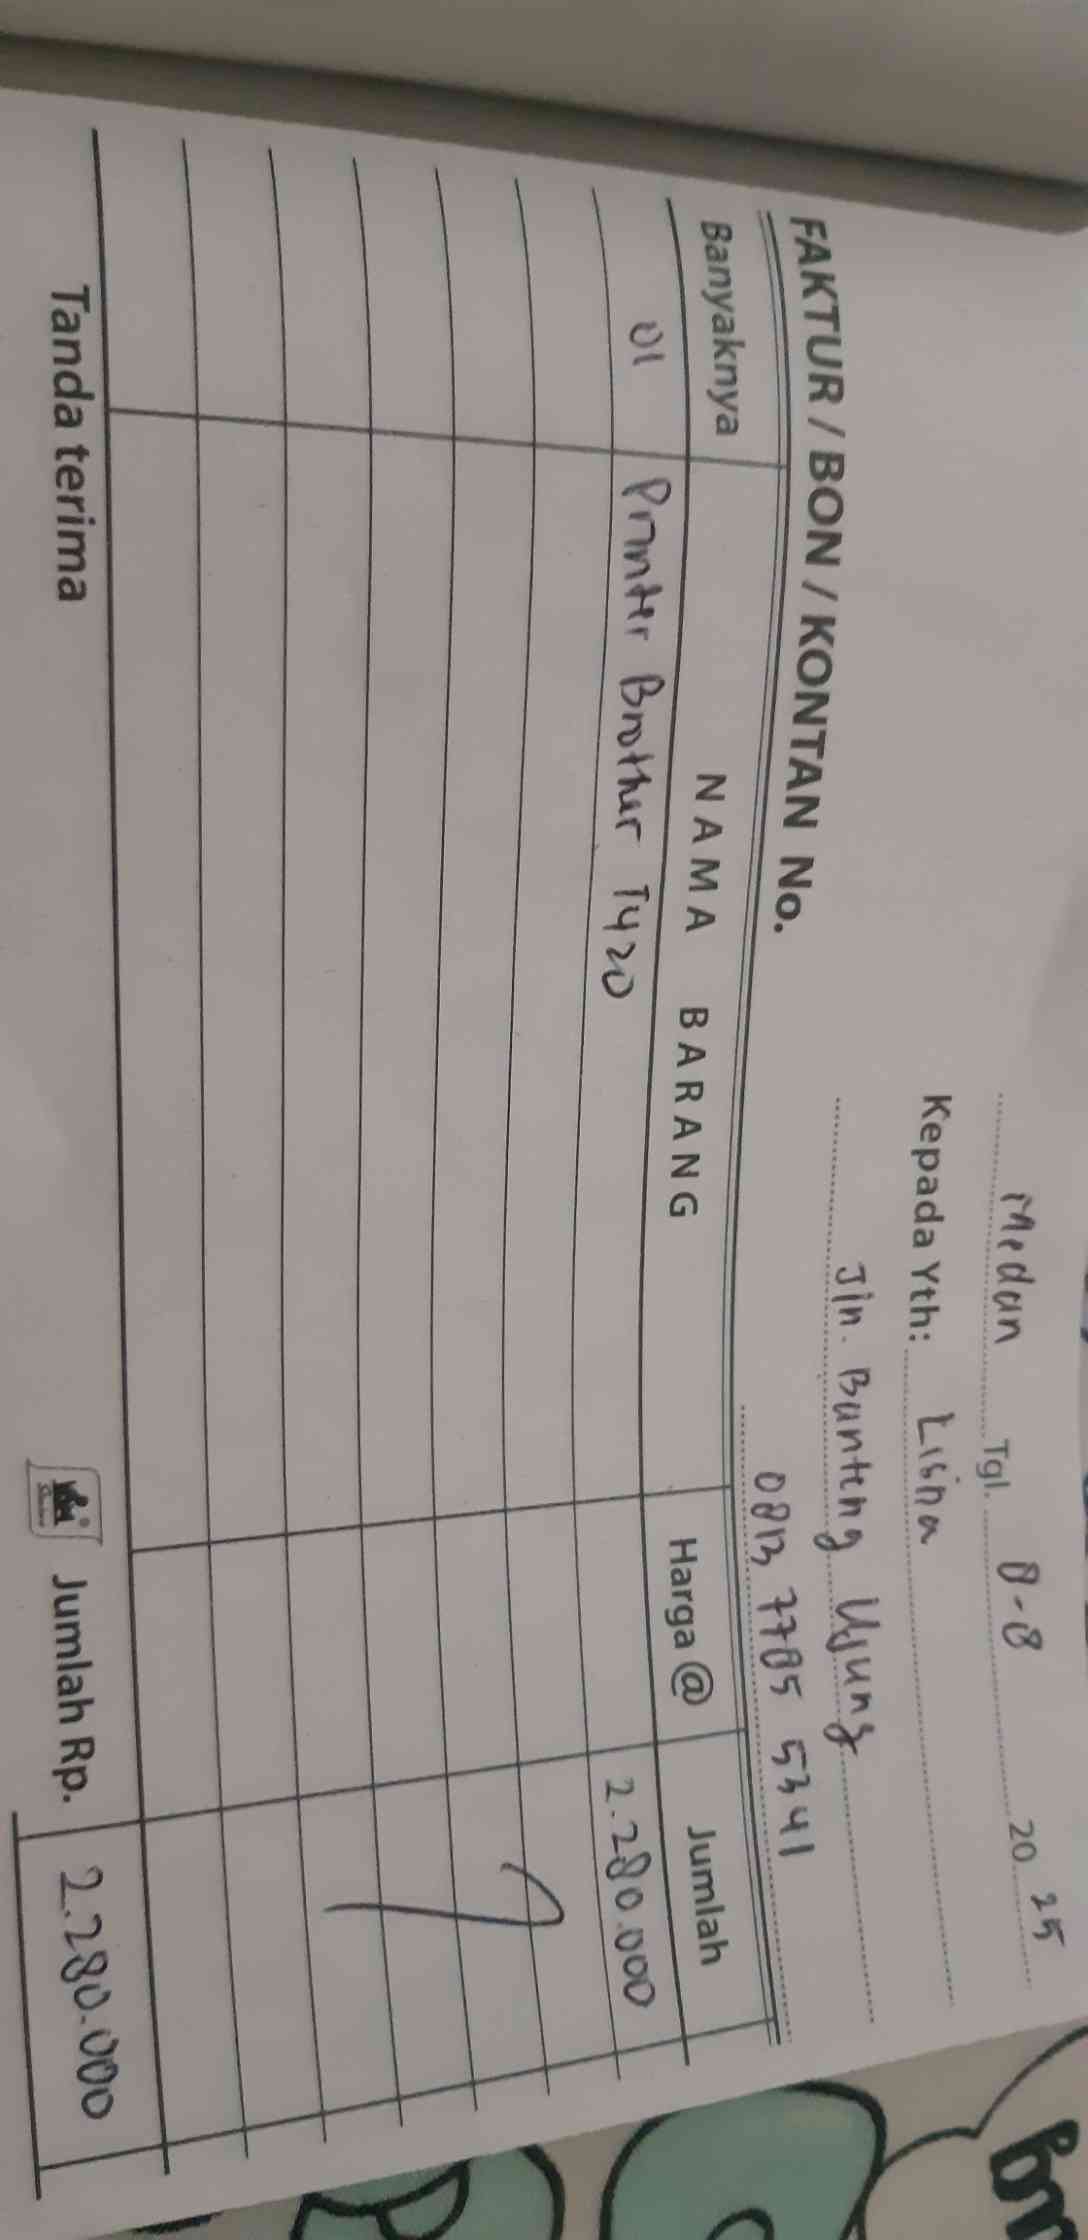 Medan Tgl. 8-8 2025
Kepada Yth: Lisna
Jln. Banteng Ujung
0813 7785 5341
FAKTUR / BON / KONTAN No.
Banyaknya NAMA BARANG Harga @ Jumlah
01 Printer Brother T420 2.280.000
Tanda terima Jumlah Rp. 2.280.000